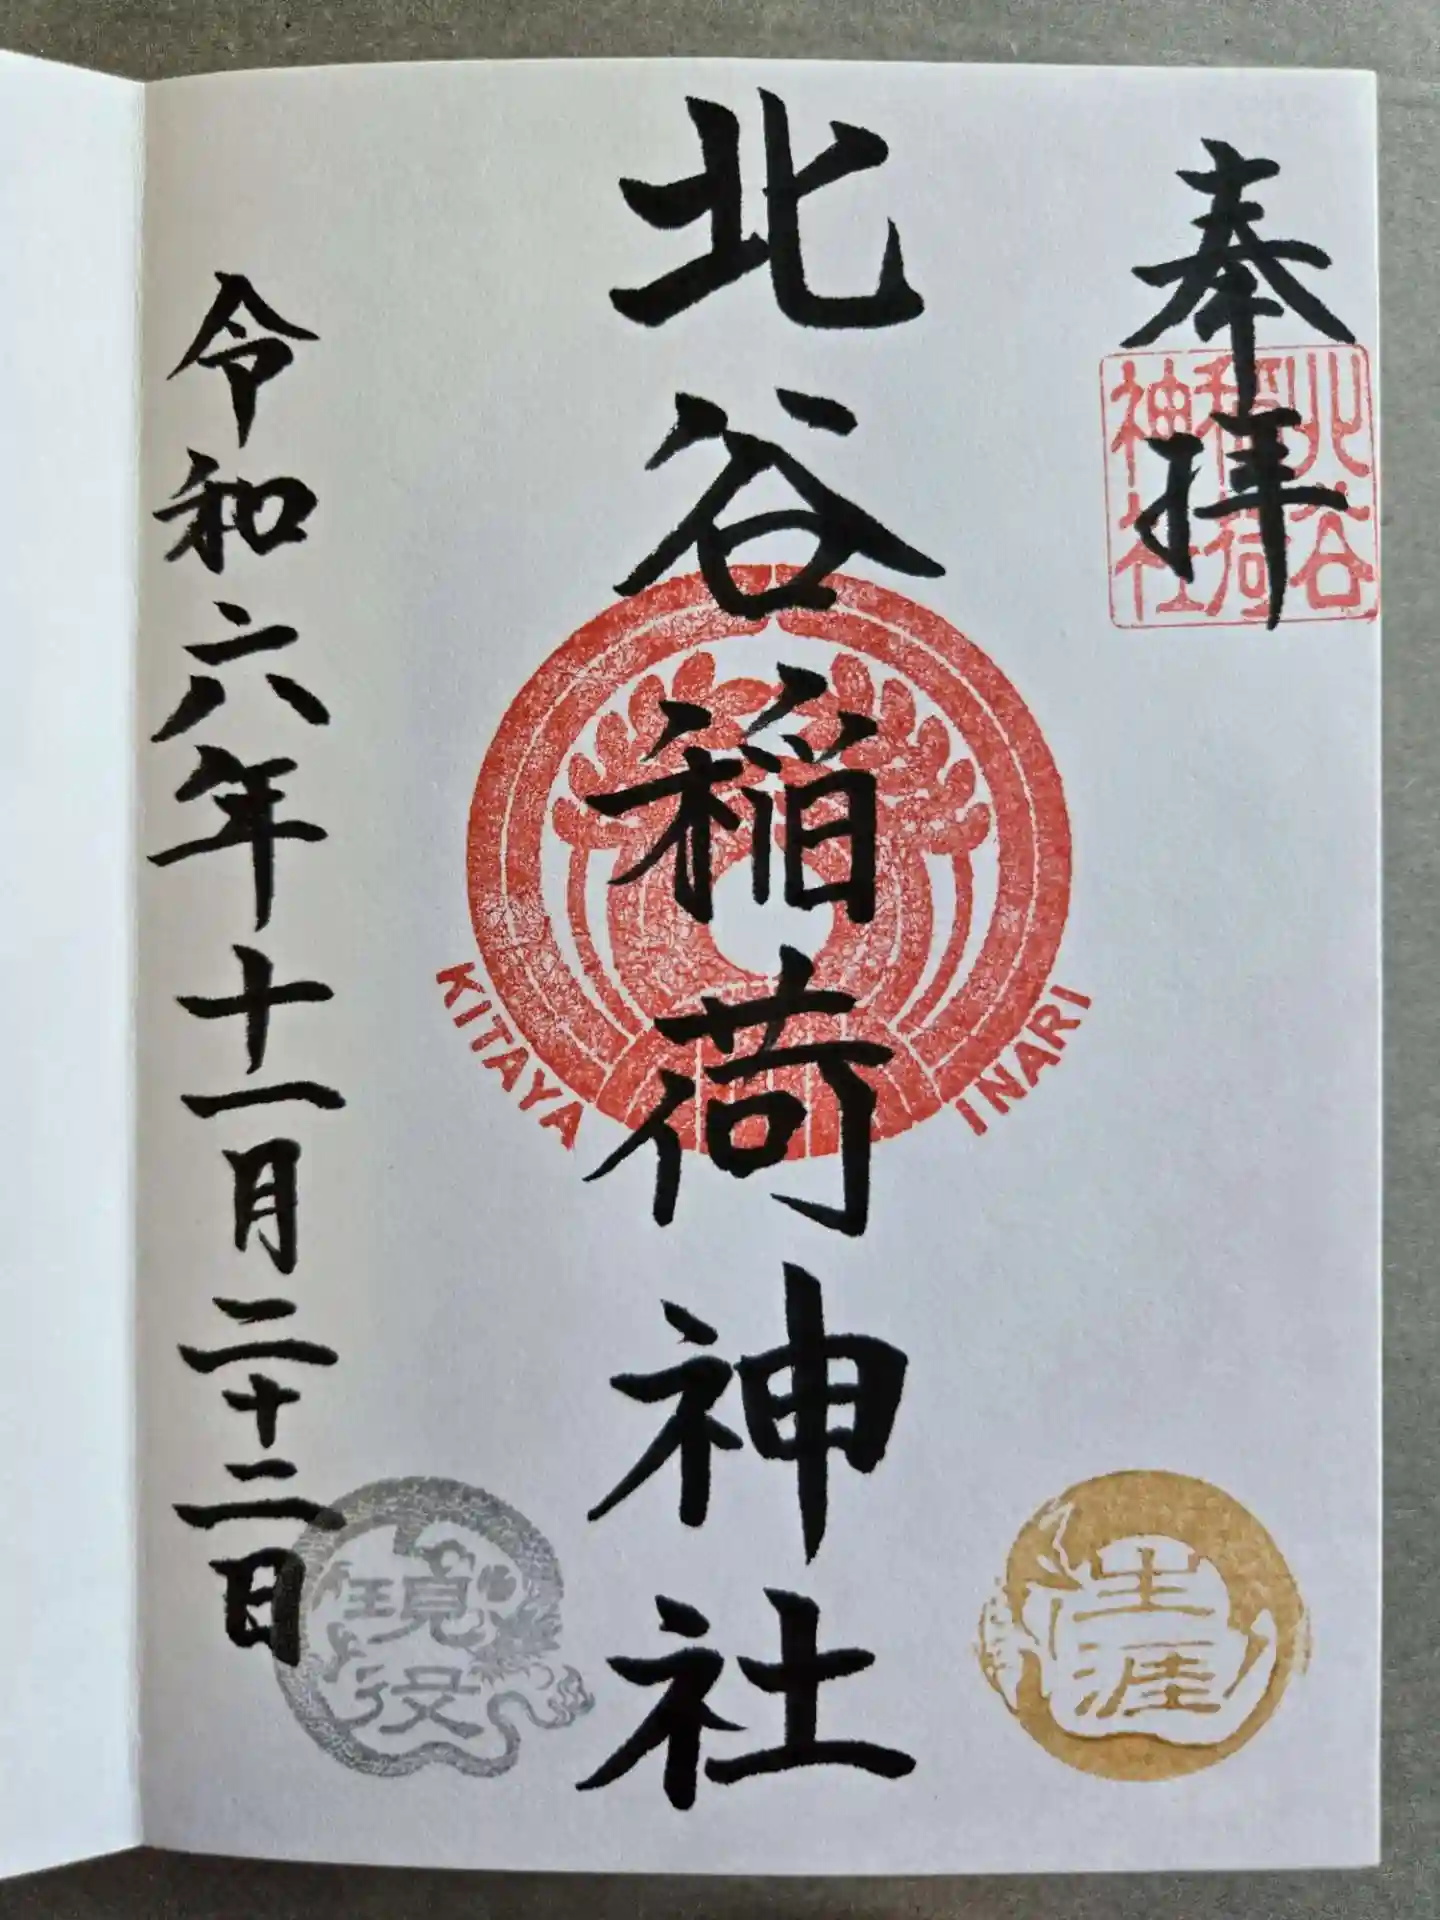 奉拝
北谷
稲荷
神社
北谷稲荷神社
KITAYA INARI
生涯
現役
令和六年十一月二十二日